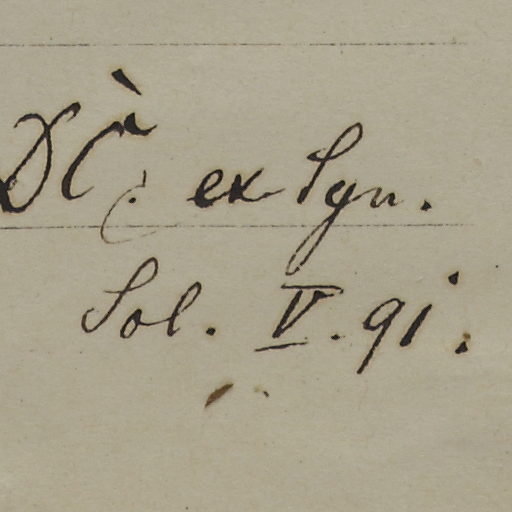 DC. ex Syn.
Sol. V. 91.